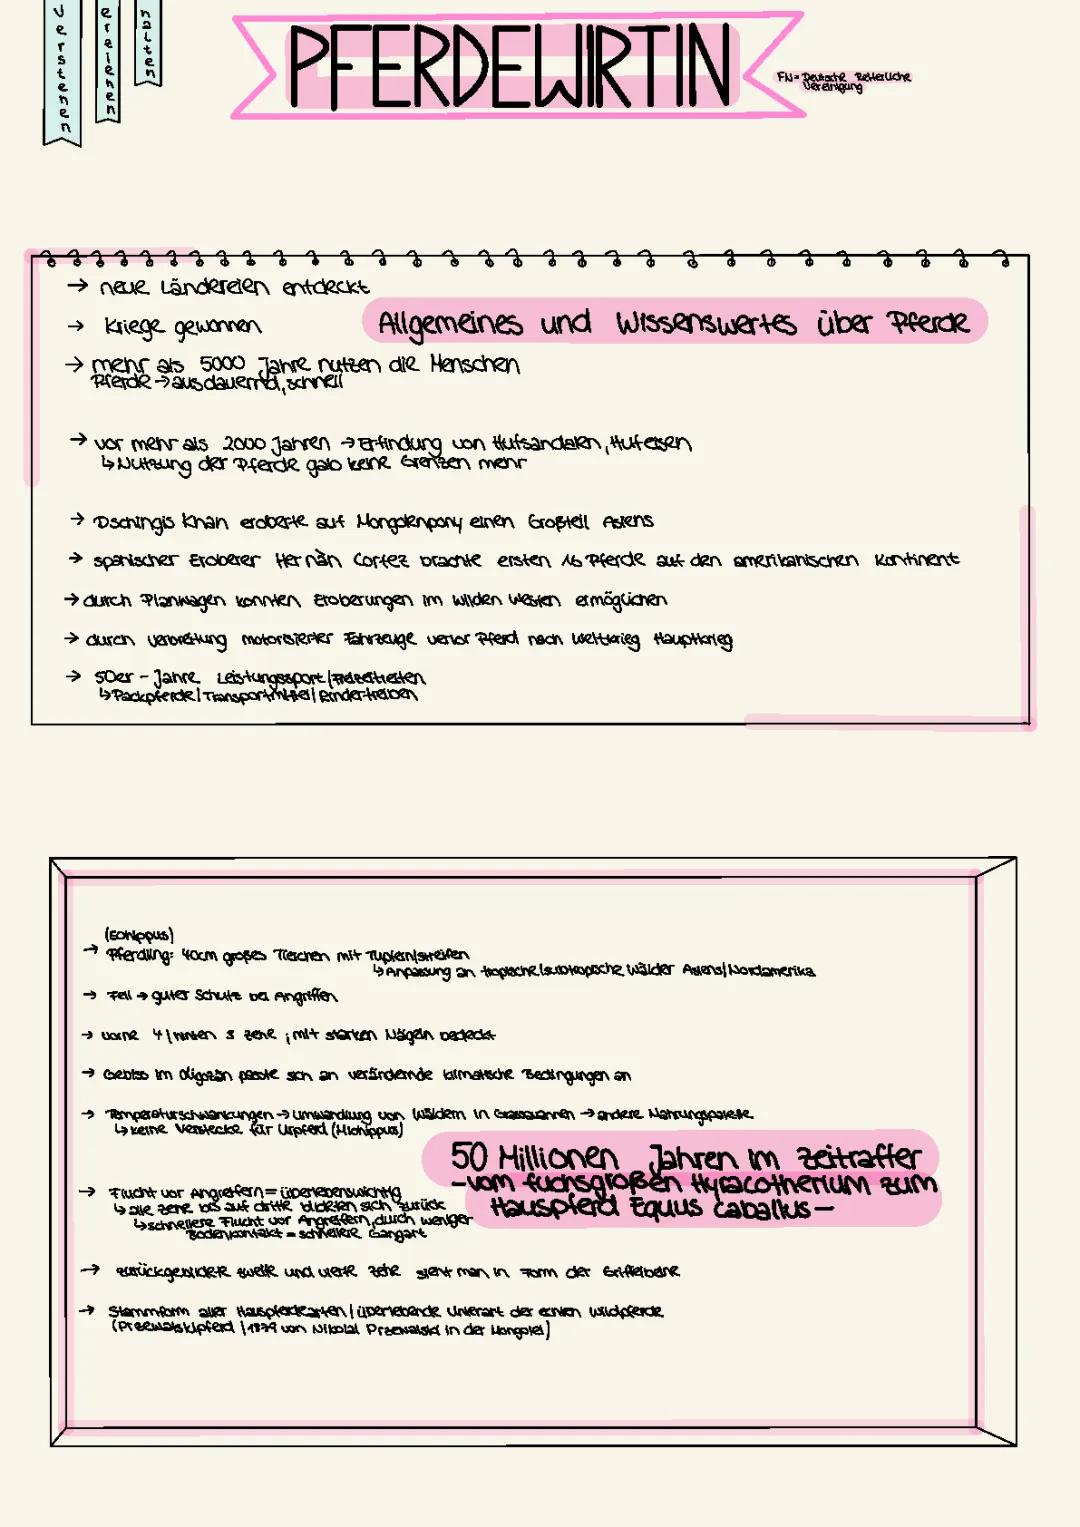 verstehen
erziehen
halten
PFERDEWIRTIN
FN = Deutsche Reiterliche
Vereinigung
→ neue Ländereien entdeckt
→ Kriege gewonnen
Allgemeines und Wissenswertes über Pferde
→ mehr als 5000 Jahre nutzen die Menschen
Pferde → ausdauernd, schnell
→ vor mehr als 2000 Jahren → Erfindung von Hufsandalen, Hufeisen
↳ Nutzung der Pferde gab keine Grenzen mehr
→ Dschingis Khan eroberte auf Mongolenpony einen Großteil Asiens
→ spanischer Eroberer Hernàn Cortez brachte ersten 16 Pferde auf den amerikanischen Kontinent
→ durch Planwagen konnten Eroberungen im wilden Westen ermöglichen
→ durch verbreitung motorisierter Fahrzeuge verlor Pferd nach Weltkrieg Hauptkrieg
→ 50er - Jahre Leistungssport / Freizeitreiten
↳ Packpferde / Transportmittel / Rindertreiben
(Eohippus)
→ Pferdling: 40cm großes Tierchen mit Tupfern/streifen
↳ Anpassung an tropische/subtropische Wälder Asiens/Nordamerika
→ Fell → guter Schutz bei Angriffen
→ vorne 4 / hinten 3 zehe ; mit starken Nägeln bedeckt
→ Gebiss im Oligozän passte sich an verändernde klimatische Bedingungen an
→ Temperaturschwankungen → Umwandlung von Wäldern in Grassavannen → andere Nahrungspalette
↳ keine Verstecke für Urpferd (Miohippus)
50 Millionen Jahren im Zeitraffer
- vom fuchsgroßen Hyracotherium zum
Hauspferd Equus Caballus -
→ Flucht vor Angreifern = überlebenswichtig
↳ alle zehe bis auf dritte bildeten sich zurück
↳ schnellere Flucht vor Angreifern, durch weniger
Bodenkontakt = schnellere Gangart
→ zurückgebildete zweite und vierte zehe sieht man in Form der Griffelbeine
→ Stammform aller Hauspferdearten / überlebende Unterart der echten Wildpferde
(Przewalskipferd / 1879 von Nikolai Przewalski in der Mongolei)